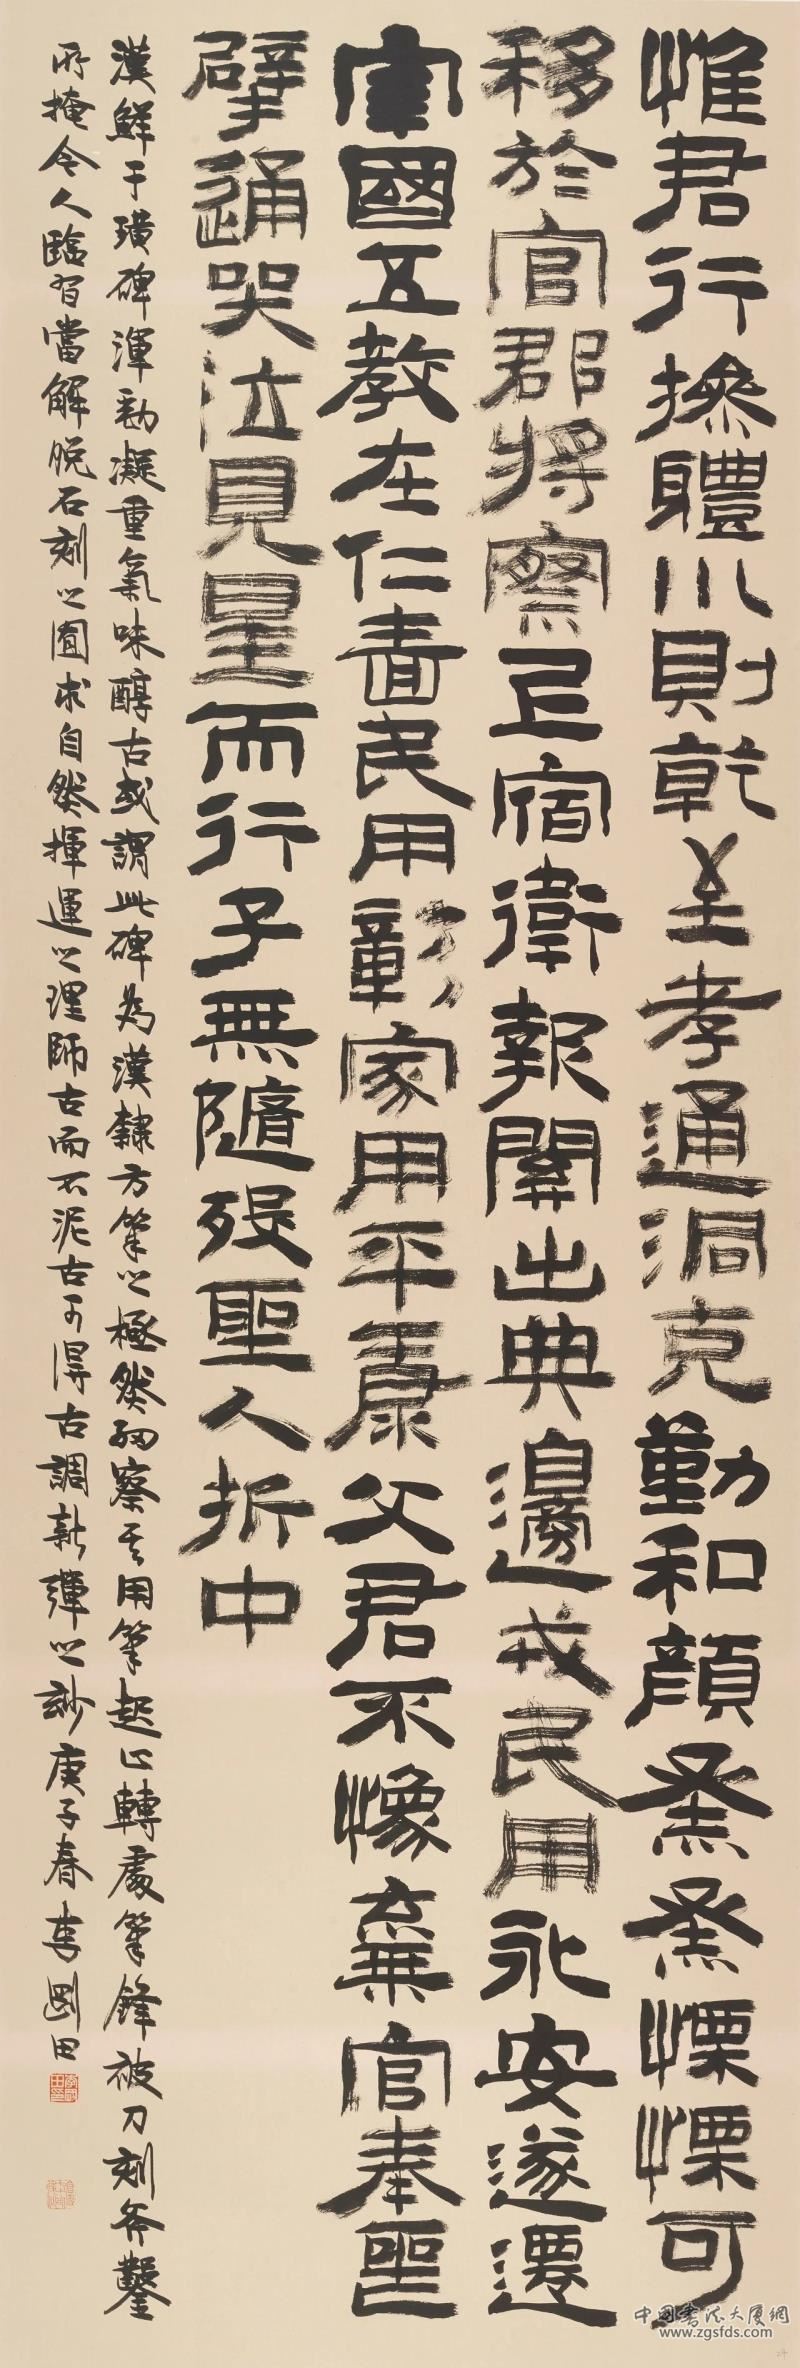 惟君行操體川則乾至孝通洞克勤和顔烝烝慄慄可
移於官郡將察上宿衛報關出典邊戎民用永安遂遷
宰國五教在仁嗇民用彰家用平康父君不豫棄官奉喪
擗通哭泣見星而行子無隨殁聖人折中
漢鮮于璜碑渾勁凝重氣味醇古或謂此碑為漢隸方筆之極然細察其用筆起止轉處筆鋒被刀刻斧鑿
所掩今人臨習當解脱石刻之囿求自然揮運之理師古而不泥古可得古調新彈之妙庚子春李剛田
中国书法大厦網
www.zgsfds.com